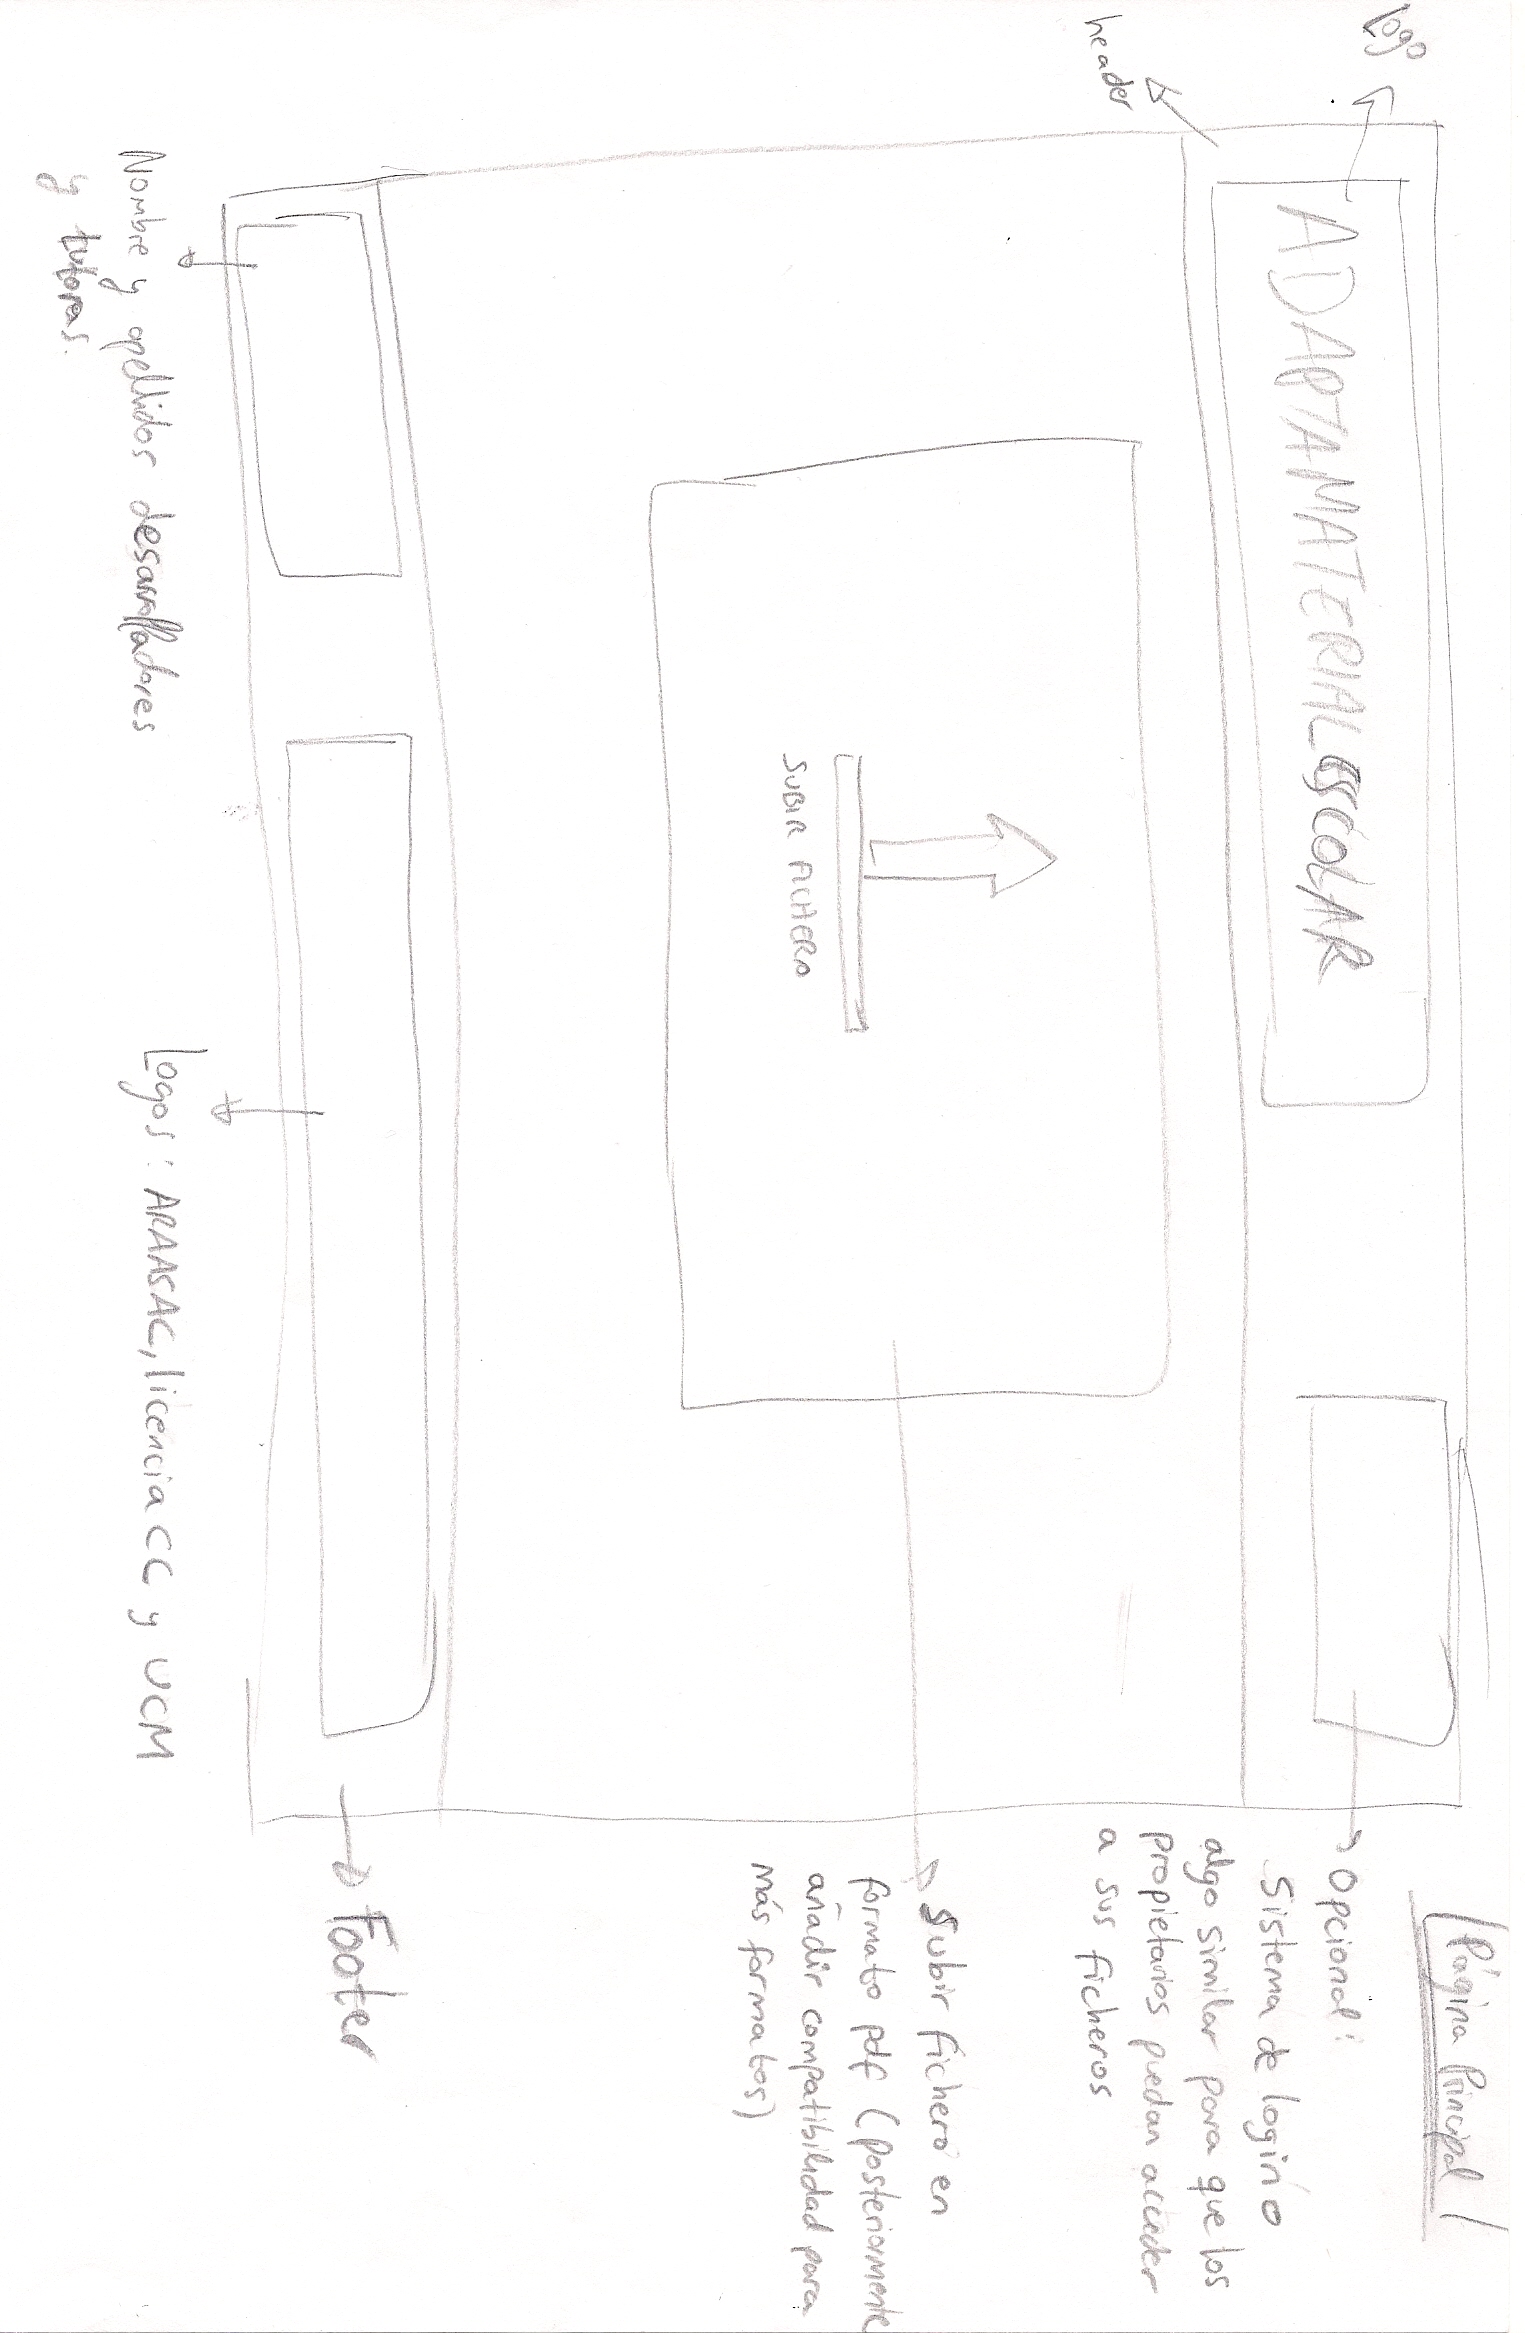 Página Principal
Logo
ADAPTAMATERIALESCOLAR
Opcional:
Sistema de login o
algo similar para que los
propietarios puedan acceder
a sus ficheros
header
SUBIR FICHERO
Subir fichero en
formato pdf (posteriormente
añadir compatibilidad para
más formatos)
Footer
Nombre y apellidos desarrolladores
y tutoras.
Logos: ARAASAC, licencia CC y UCM